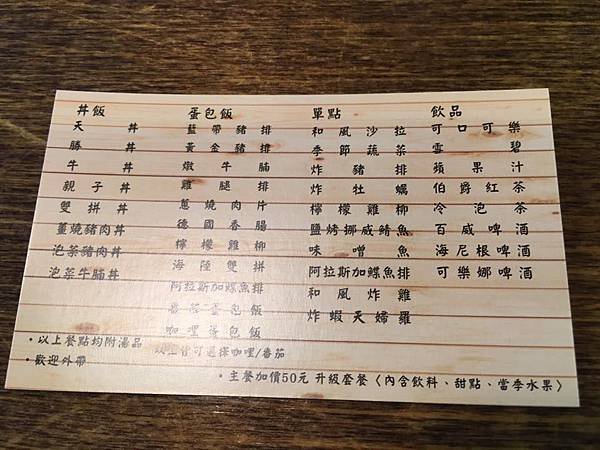 丼飯
天丼
勝丼
牛丼
親子丼
雙拼丼
薑燒豬肉丼
泡菜豬肉丼
泡菜牛腩丼
蛋包飯
藍帶豬排
黃金豬排
燉牛腩
雞腿排
蔥燒肉片
德國香腸
檸檬雞柳
海陸雙拼
阿拉斯加鰈魚排
番茄蛋包飯
咖哩蛋包飯
以上皆可選擇咖哩/番茄
單點
和風沙拉
季節蔬菜
炸豬排
炸牡蠣
檸檬雞柳
鹽烤挪威鯖魚
味噌魚
阿拉斯加鰈魚排
和風炸雞
炸蝦天婦羅
飲品
可口可樂
雪碧
蘋果汁
伯爵紅茶
冷泡茶
百威啤酒
海尼根啤酒
可樂娜啤酒
・以上餐點均附湯品
・歡迎外帶
・主餐加價50元 升級套餐〈內含飲料、甜點、當季水果〉